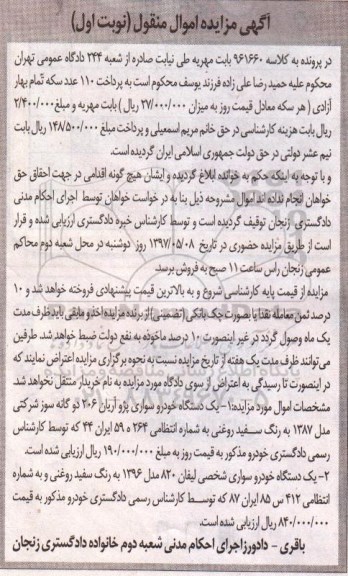 آگهی مزایده اموال منقول (نوبت اول)
در پرونده به کلاسه ۹۶۱۶۶۰ بابت مهریه طی نیابت صادره از شعبه ۲۴۴ دادگاه عمومی تهران
محکوم علیه حمید رضا علی زاده فرزند یوسف محکوم است به پرداخت ۱۱۰ عدد سکه تمام بهار
آزادی ( هر سکه معادل قیمت روز به میزان ۲۷/۰۰۰/۰۰۰ ریال ) بابت مهریه و مبلغ ۲/۴۰۰/۰۰۰
ریال بابت هزینه کارشناسی در حق خانم مریم اسمعیلی و پرداخت مبلغ ۱۴۸/۵۰۰/۰۰۰ ریال بابت
نیم عشر دولتی در حق دولت جمهوری اسلامی ایران گردیده است.
و با توجه به اینکه حکم به خوانده ابلاغ گردیده و ایشان هیچ گونه اقدامی در جهت احقاق حق
خواهان انجام نداده اند اموال مشروحه ذیل بنا به در خواست خواهان توسط اجرای احکام مدنی
دادگستری زنجان توقیف گردیده است و توسط کارشناس خبره دادگستری ارزیابی شده و قرار
است از طریق مزایده حضوری در تاریخ ۱۳۹۷/۰۵/۰۸ روز دوشنبه در محل شعبه دوم محاکم
عمومی زنجان راس ساعت ۱۱ صبح به فروش برسد.
مزایده از قیمت پایه کارشناسی شروع و به بالاترین قیمت پیشنهادی فروخته خواهد شد و ۱۰
درصد ثمن معامله نقدا یا بصورت چک بانکی (تضمینی) از برنده مزایده اخذ و مابقی باید ظرف مدت
یک ماه وصول گردد در غیر اینصورت ۱۰ درصد ماخوذه به نفع دولت ضبط خواهد شد. طرفین
می‌توانند ظرف مدت یک هفته از تاریخ مزایده نسبت به نحوه برگزاری مزایده اعتراض نمایند که
در اینصورت تا رسیدگی به اعتراض از سوی دادگاه مورد مزایده به نام خریدار منتقل نخواهد شد.
مشخصات اموال مورد مزایده:۱- یک دستگاه خودرو سواری پژو آریان ۲۰۶ دو گانه سوز شرکتی
مدل ۱۳۸۷ به رنگ سفید روغنی به شماره انتظامی ۲۶۴ ه ۵۹ ایران ۴۴ که توسط کارشناس
رسمی دادگستری خودرو مذکور به قیمت روز به مبلغ ۱۹۰/۰۰۰/۰۰۰ ریال ارزیابی شده است.
۲- یک دستگاه خودرو سواری شخصی لیفان ۸۲۰ مدل ۱۳۹۶ به رنگ سفید روغنی و به شماره
انتظامی ۴۱۲ س ۸۵ ایران ۸۷ که توسط کارشناس رسمی دادگستری خودرو مذکور به قیمت
۸۴۰/۰۰۰/۰۰۰ ریال ارزیابی شده است.
باقری - دادورز اجرای احکام مدنی شعبه دوم خانواده دادگستری زنجان